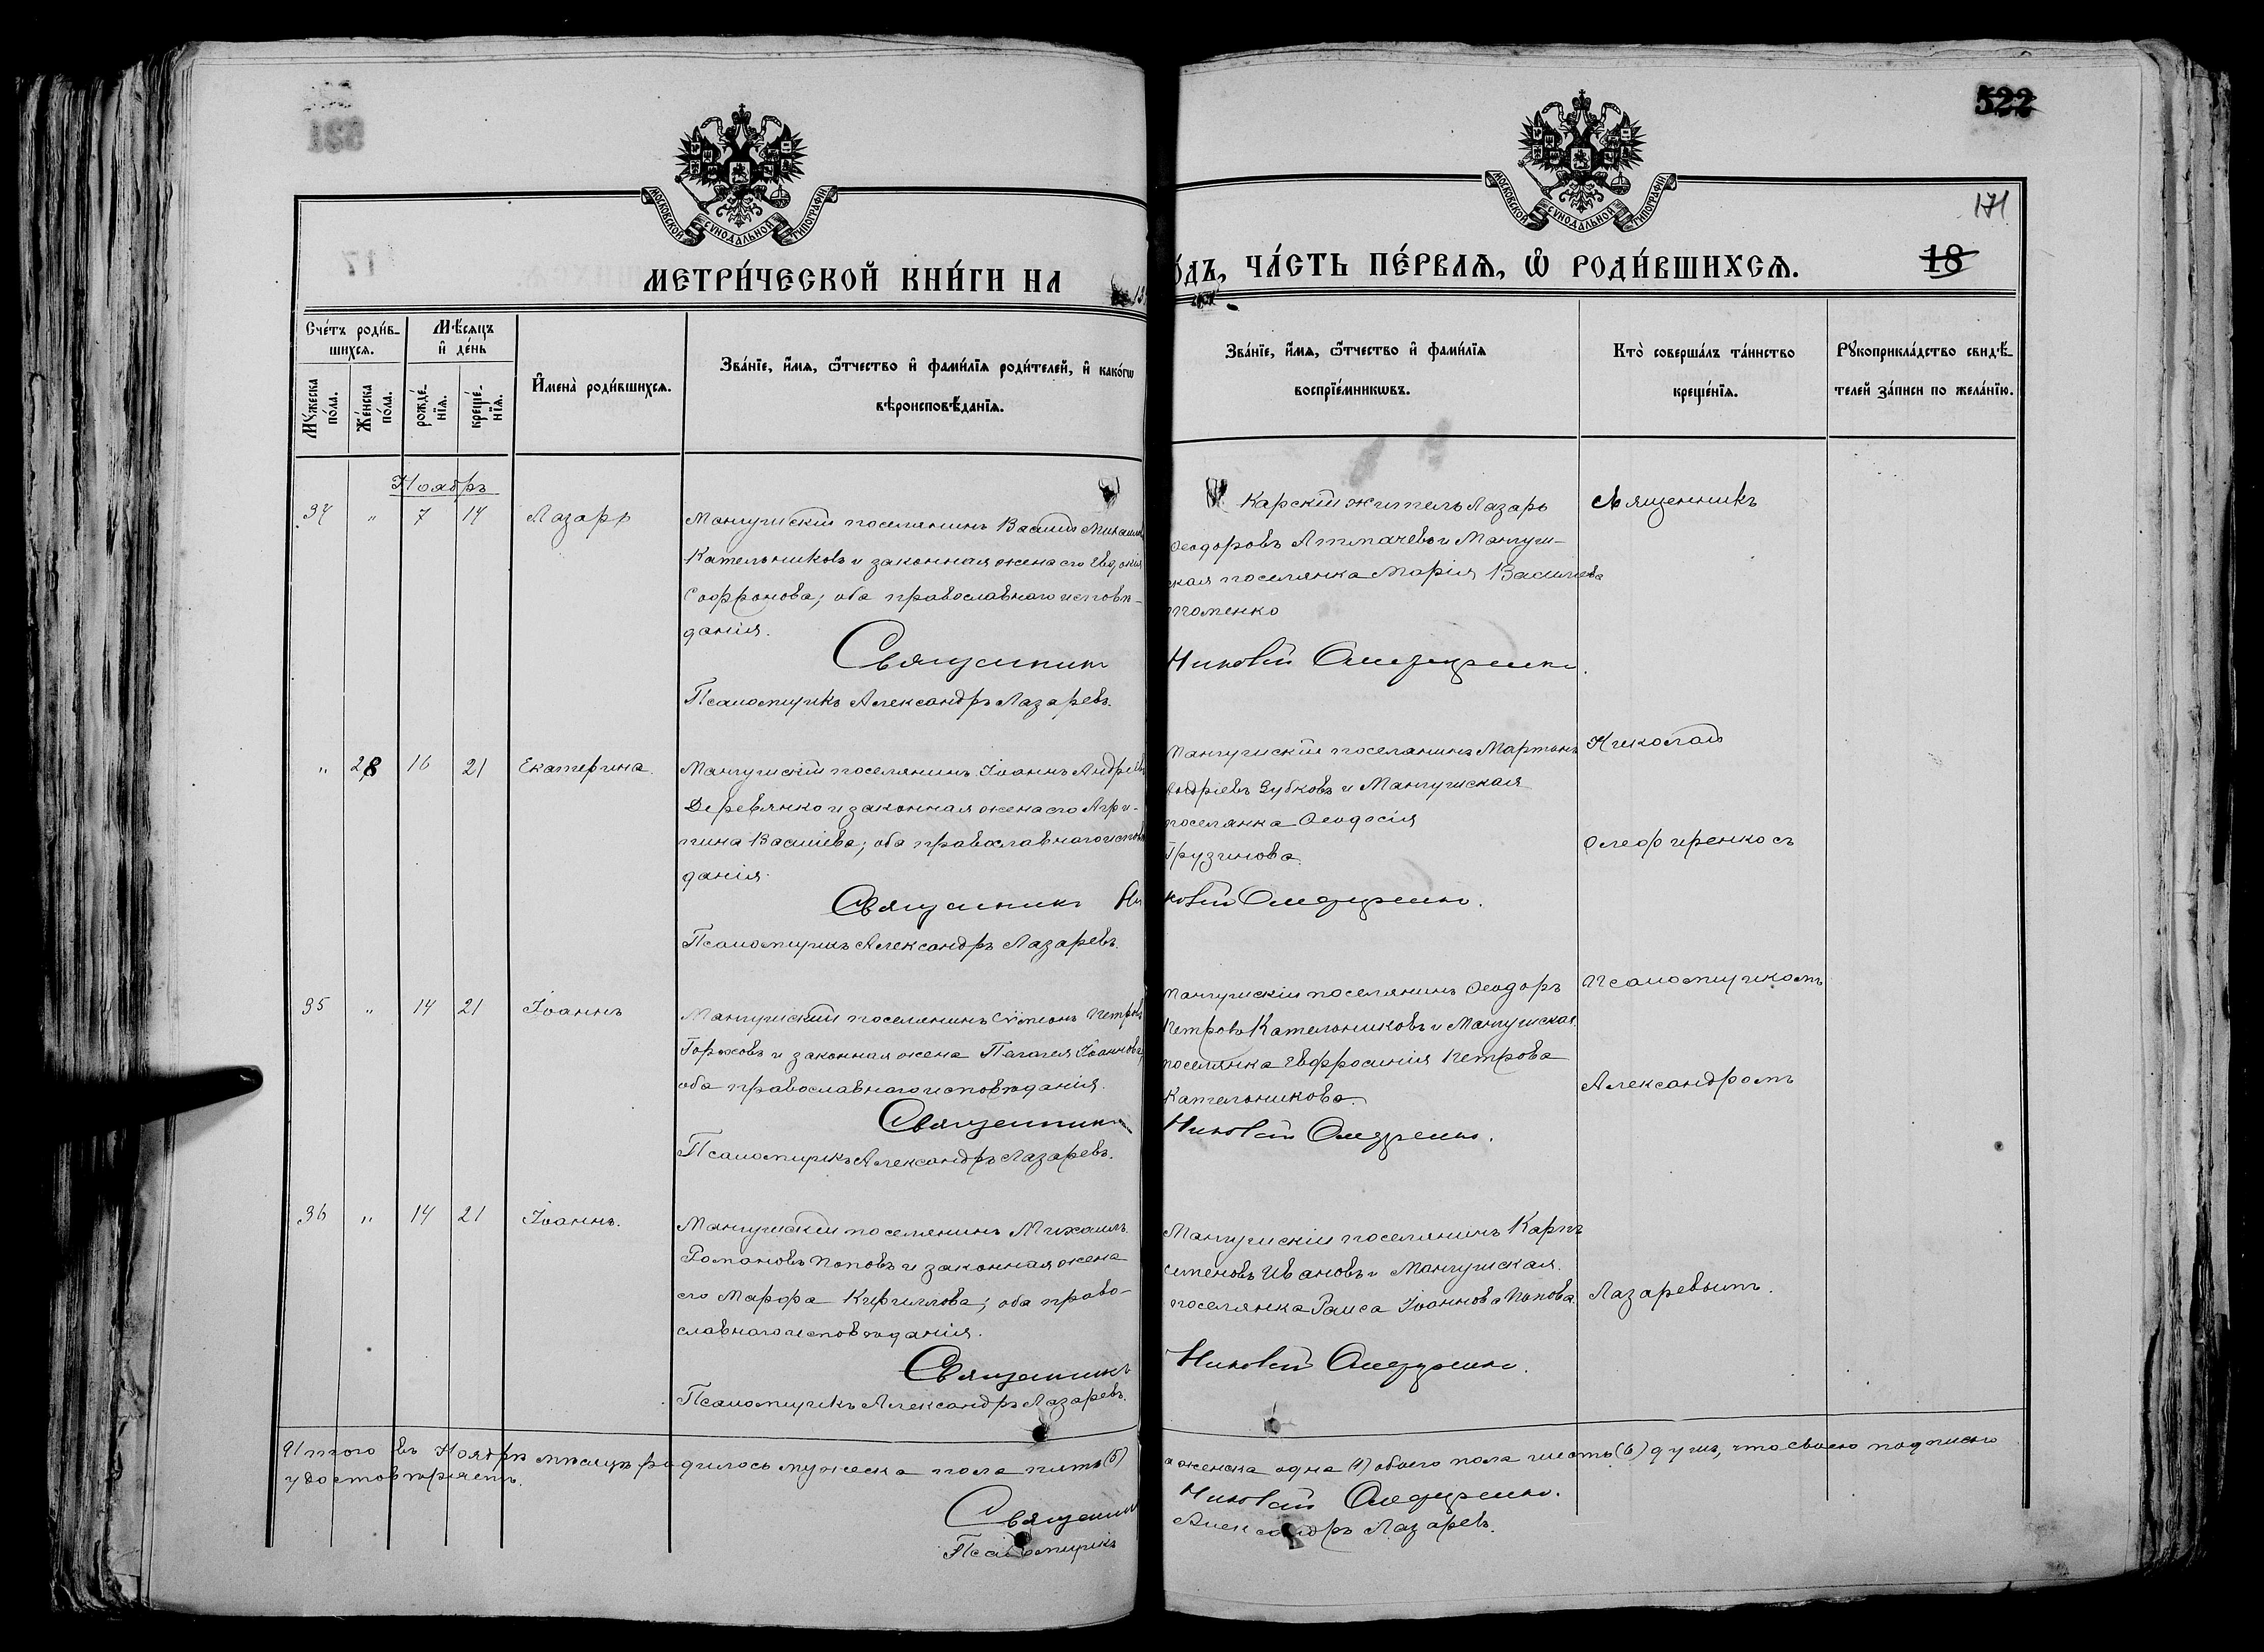 522
171
МОСКОВСКОЙ СѴНОДАЛЬНОЙ ТИПОГРАФІИ
МОСКОВСКОЙ СѴНОДАЛЬНОЙ ТИПОГРАФІИ
МЕТРИ́ЧЕСКОЙ КНИ́ГИ НА
ЧА́СТЬ ПЕ́РВАѦ, Ѡ҆ РОДИ́ВШИХСѦ.
18
Сче́тъ роди́в-
шихся.
Мѣ́сяцъ
и҆ де́нь
Му́жеска
по́ла.
Же́нска
по́ла.
рожде́-
нїя.
креще́-
нїя.
И҆мена̀ роди́вшихся.
Зва́нїе, и҆́мя, ѻ҆́тчество и҆ фами́лїя роди́телей, и҆ како́гѡ
вѣроисповѣ́данїя.
Зва́нїе, и҆́мя, ѻ҆́тчество и҆ фами́лїя
воспрїе́мникѡвъ.
Кто̀ соверша́лъ та́инство
креще́нїя.
Рꙋкоприкла́дство свидѣ́-
телей за́писи по жела́нїю.
Ноябрь
34 " 7 14 Лазарь
Мангушскій поселянинъ Василій
Кательниковъ и законная жена его Евдокія
Софронова; оба православнаго исповѣ-
данія.
Священникъ
Псаломщикъ Александръ Лазаревъ.
Карскій житель Лазарь
Ѳеодоровъ и Мангуш-
ская поселянка Марія Васильева
Николай Олефиренко.
Священникъ
" 28 16 21 Екатерина.
Мангушскій поселянинъ Іоаннъ Андреевъ
Деревянко и законная жена его Агри-
пина Васильева; оба православнаго исповѣ
данія.
Священникъ Ни
Псаломщикъ Александръ Лазаревъ.
Мангушскій поселянинъ Мартинъ
Андріевъ Зубковъ и Мангушская
поселянка Ѳеодосія
Грузинова.
колай Олефиренко.
Николай
Олефиренко съ
35 " 14 21 Іоаннъ
Мангушскій поселянинъ Сѵмеонъ Петровъ
Горжовъ и законная жена Пелагея Іоаннова,
оба православнаго исповѣданія.
Священникъ
Псаломщикъ Александръ Лазаревъ.
Мангушскій поселянинъ Ѳеодоръ
Петровъ Кательниковъ и Мангушская
поселянка Евфросинія Петрова
Кательникова.
Николай Олефиренко.
Псаломщикомъ
Александромъ
36 " 14 21 Іоаннъ.
Мангушскій поселянинъ Михаилъ
Романовъ Поповъ и законная жена
его Марфа Кириллова; оба право-
славнаго исповѣданія.
Священникъ
Псаломщикъ Александръ Лазаревъ.
Мангушскій поселянинъ Карпъ
Семеновъ Ивановъ и Мангушская
поселянка Раиса Іоаннова Попова.
Николай Олефиренко.
Лазаревымъ.
Итого въ Ноябрѣ мѣсяцѣ родилось мужеска пола пять (5)
а женска одна (1) обоего пола шесть (6) душъ, что своею подписью
удостовѣряемъ.
Священник
Николай Олефиренко.
Псаломщикъ
Александръ Лазаревъ.